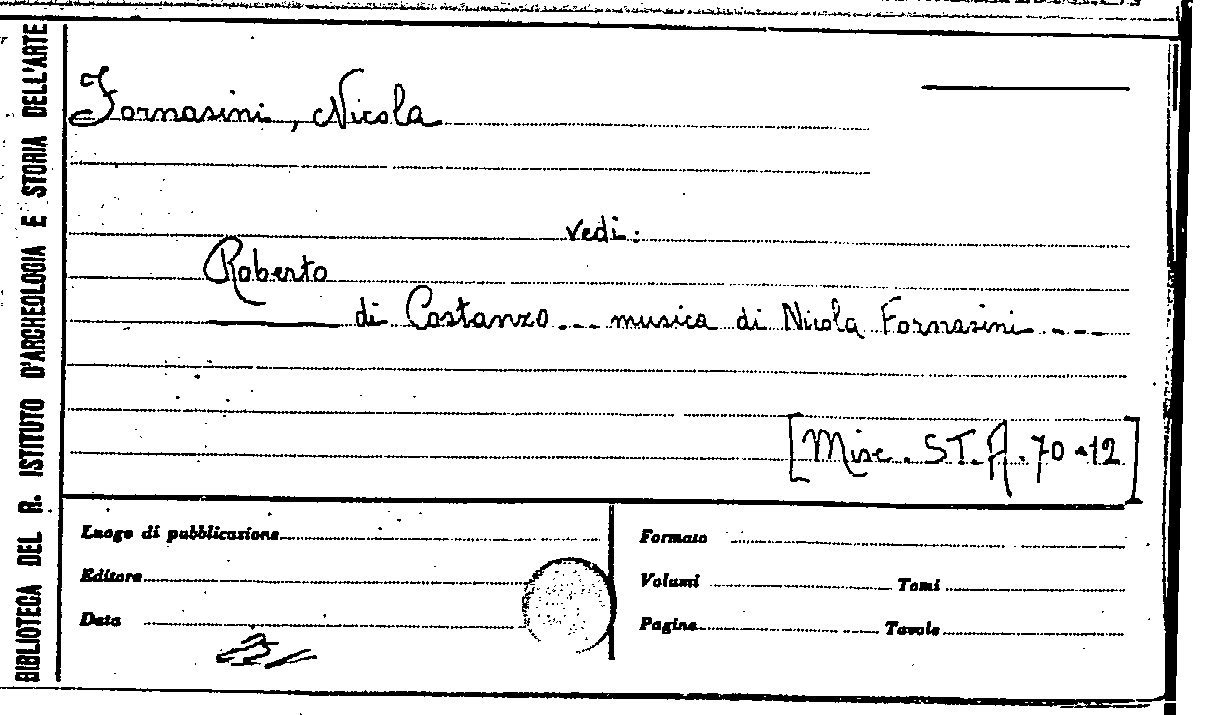 BIBLIOTECA DEL R. ISTITUTO D'ARCHEOLOGIA E STORIA DELL'ARTE
Fornasini, Nicola
vedi:
Roberto
di Costanzo... musica di Nicola Fornasini....
[Misc. ST. A. 70.12]
Luogo di pubblicazione
Editore
Data
Formato
Volumi Tomi
Pagine Tavole